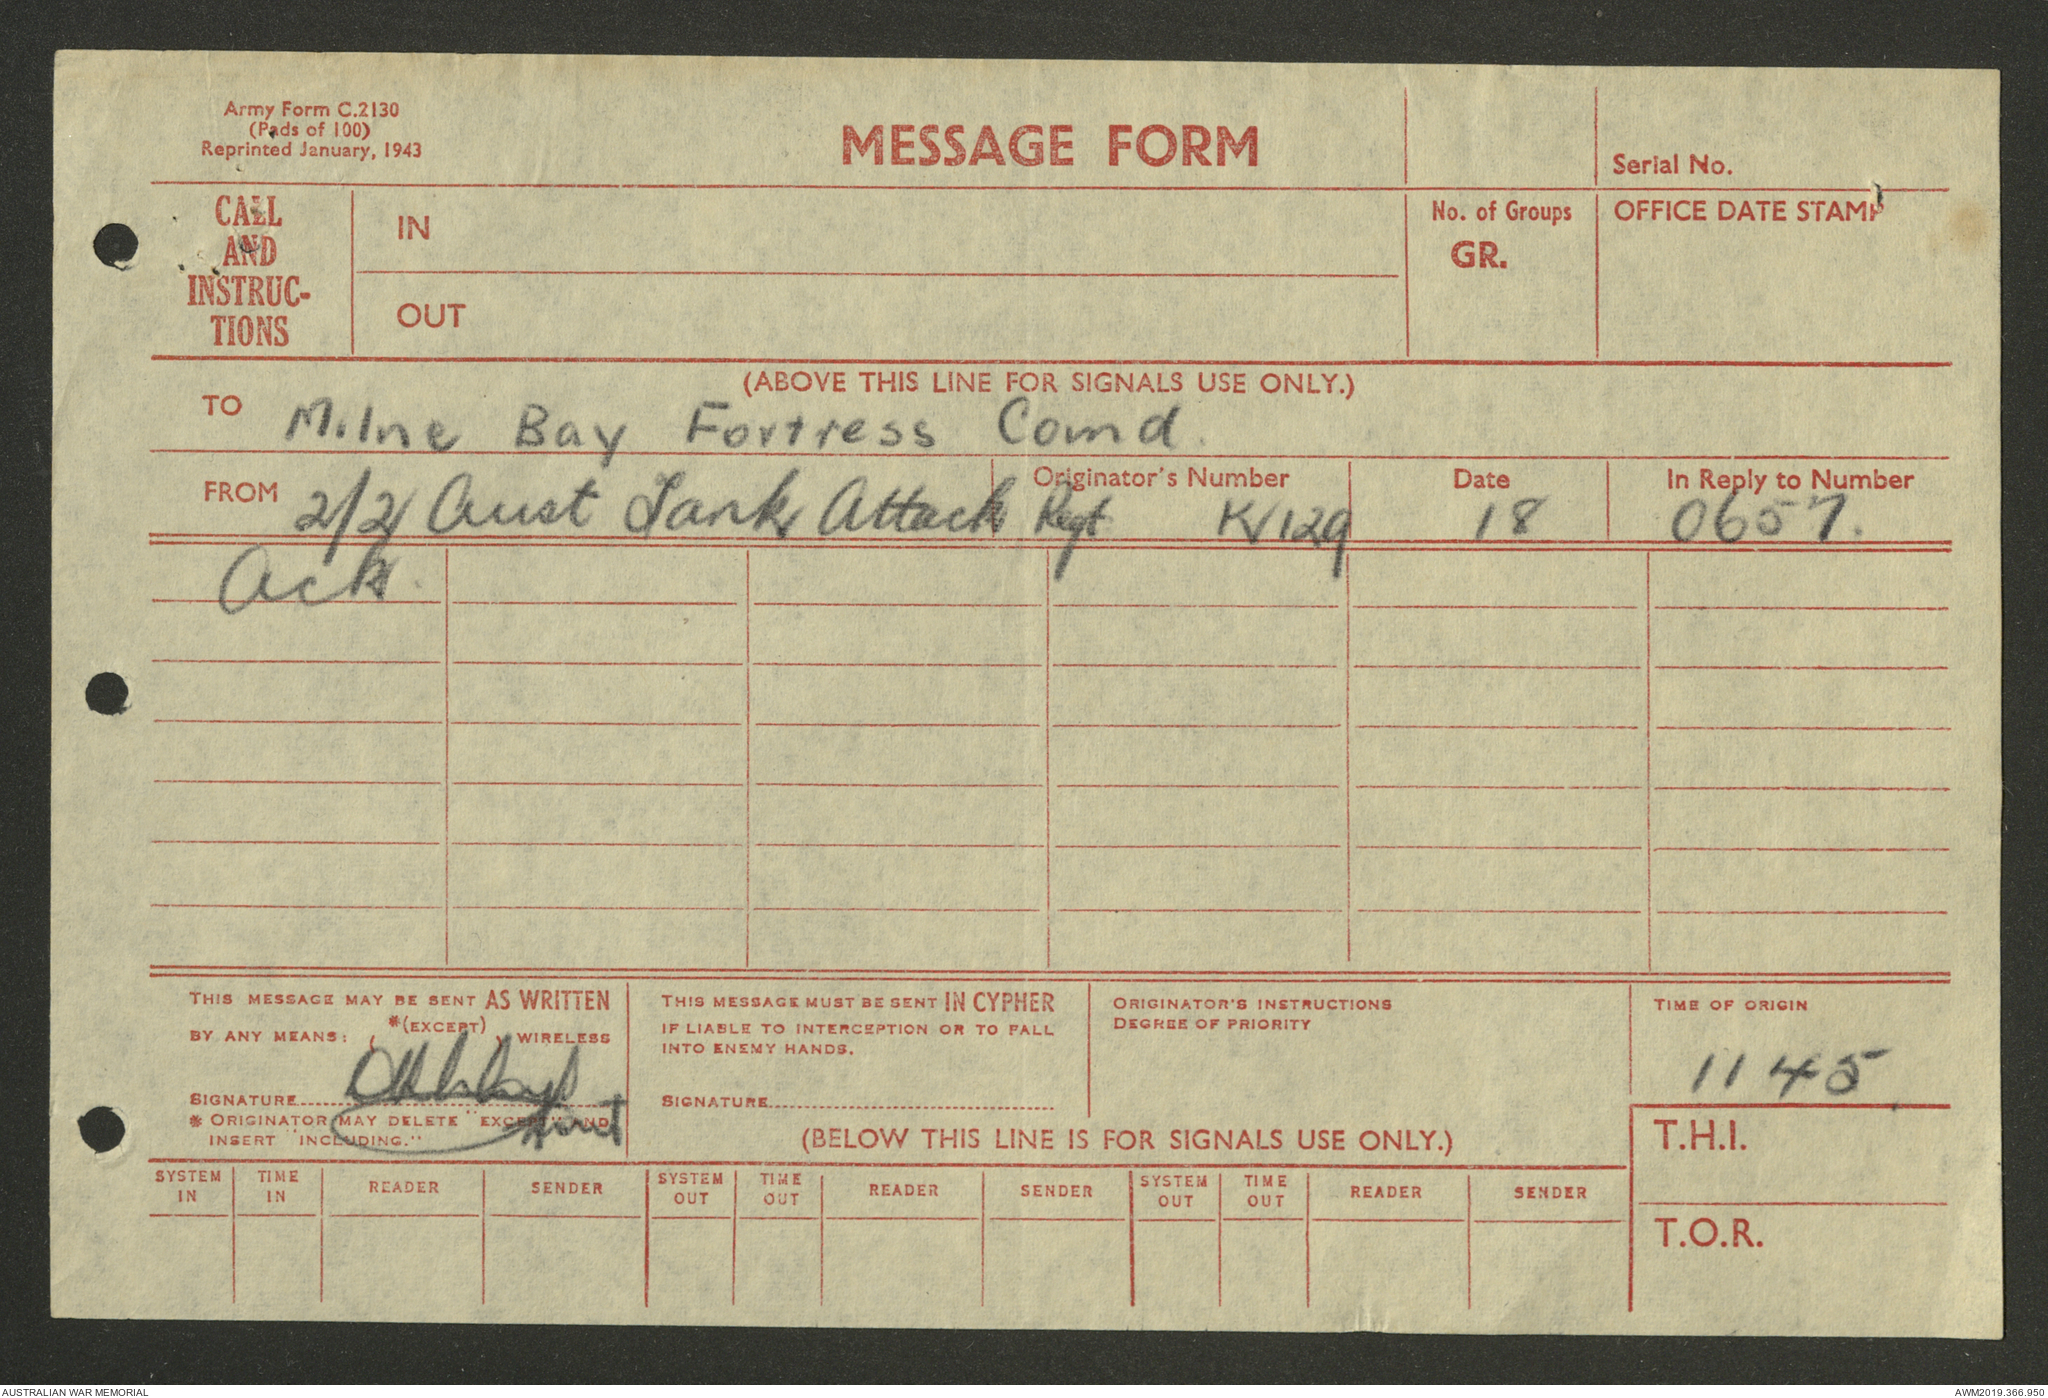 Army Form C.2130
(Pads of 100)
Reprinted January, 1943
MESSAGE FORM
Serial No.
CALL
AND
INSTRUC-
TIONS
IN
OUT
No. of Groups
GR.
OFFICE DATE STAMP
(ABOVE THIS LINE FOR SIGNALS USE ONLY.)
TO Milne Bay Fortress Comd.
FROM 2/2 Aust Tank Attack Regt
Originator's Number K129
Date 18
In Reply to Number 0657.
Ack.
THIS MESSAGE MAY BE SENT AS WRITTEN
BY ANY MEANS: (*(EXCEPT)) WIRELESS
SIGNATURE
* ORIGINATOR MAY DELETE "EXCEPT" AND
INSERT "INCLUDING."
THIS MESSAGE MUST BE SENT IN CYPHER
IF LIABLE TO INTERCEPTION OR TO FALL
INTO ENEMY HANDS.
SIGNATURE
ORIGINATOR'S INSTRUCTIONS
DEGREE OF PRIORITY
TIME OF ORIGIN
1145
(BELOW THIS LINE IS FOR SIGNALS USE ONLY.)
T.H.I.
T.O.R.
SYSTEM IN TIME IN READER SENDER SYSTEM OUT TIME OUT READER SENDER SYSTEM OUT TIME OUT READER SENDER
AUSTRALIAN WAR MEMORIAL
AWM2019.366.950